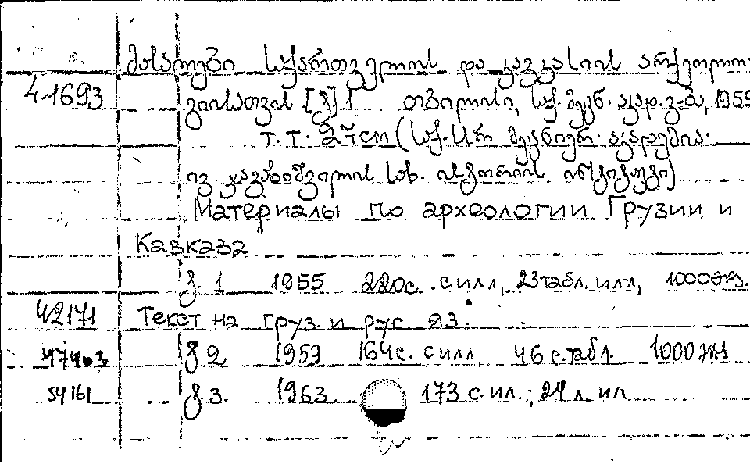 მასალები საქართველოს და კავკასიის არქეოლო-
4-1693 გიისათვის [ტ] 1 თბილისი, საქ. მეცნ. აკად. გ-ბა, 1955
т. т. 27 cm (საქ. სსრ მეცნიერ. აკადემია.
ივ ჯავახიშვილის სახ. ისტორიის ინსტიტუტი)
Материалы по археологии Грузии и
Кавказа
ტ 1 1955 220с. с илл, 23 табл. илл, 1000 экз.
42171 Текст на груз. и рус яз.
47463 ტ 2 1959 164с. с илл 46 с. табл. 1000 экз
54161 ტ 3. 1963 173 с ил.; 24 л. ил